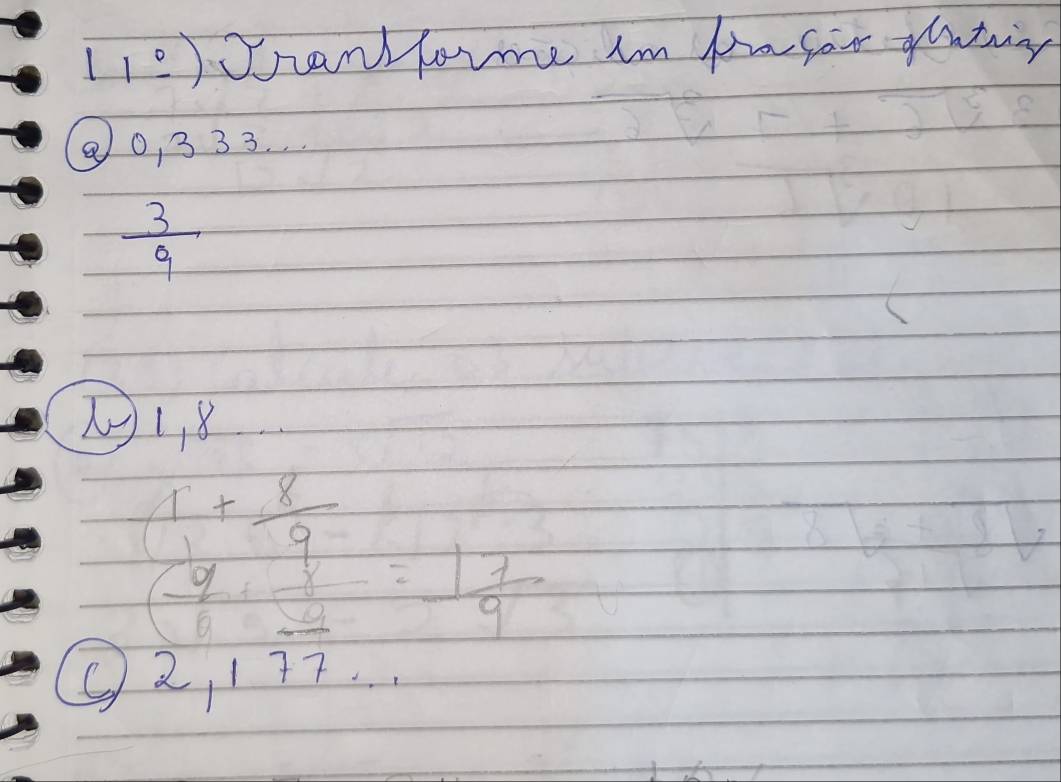 11º) Transforme em fração
a) 0,333...
3
9
b) 1,8...
1 + 8/9
9/9 + 8/9 = 17/9
c) 2,177...